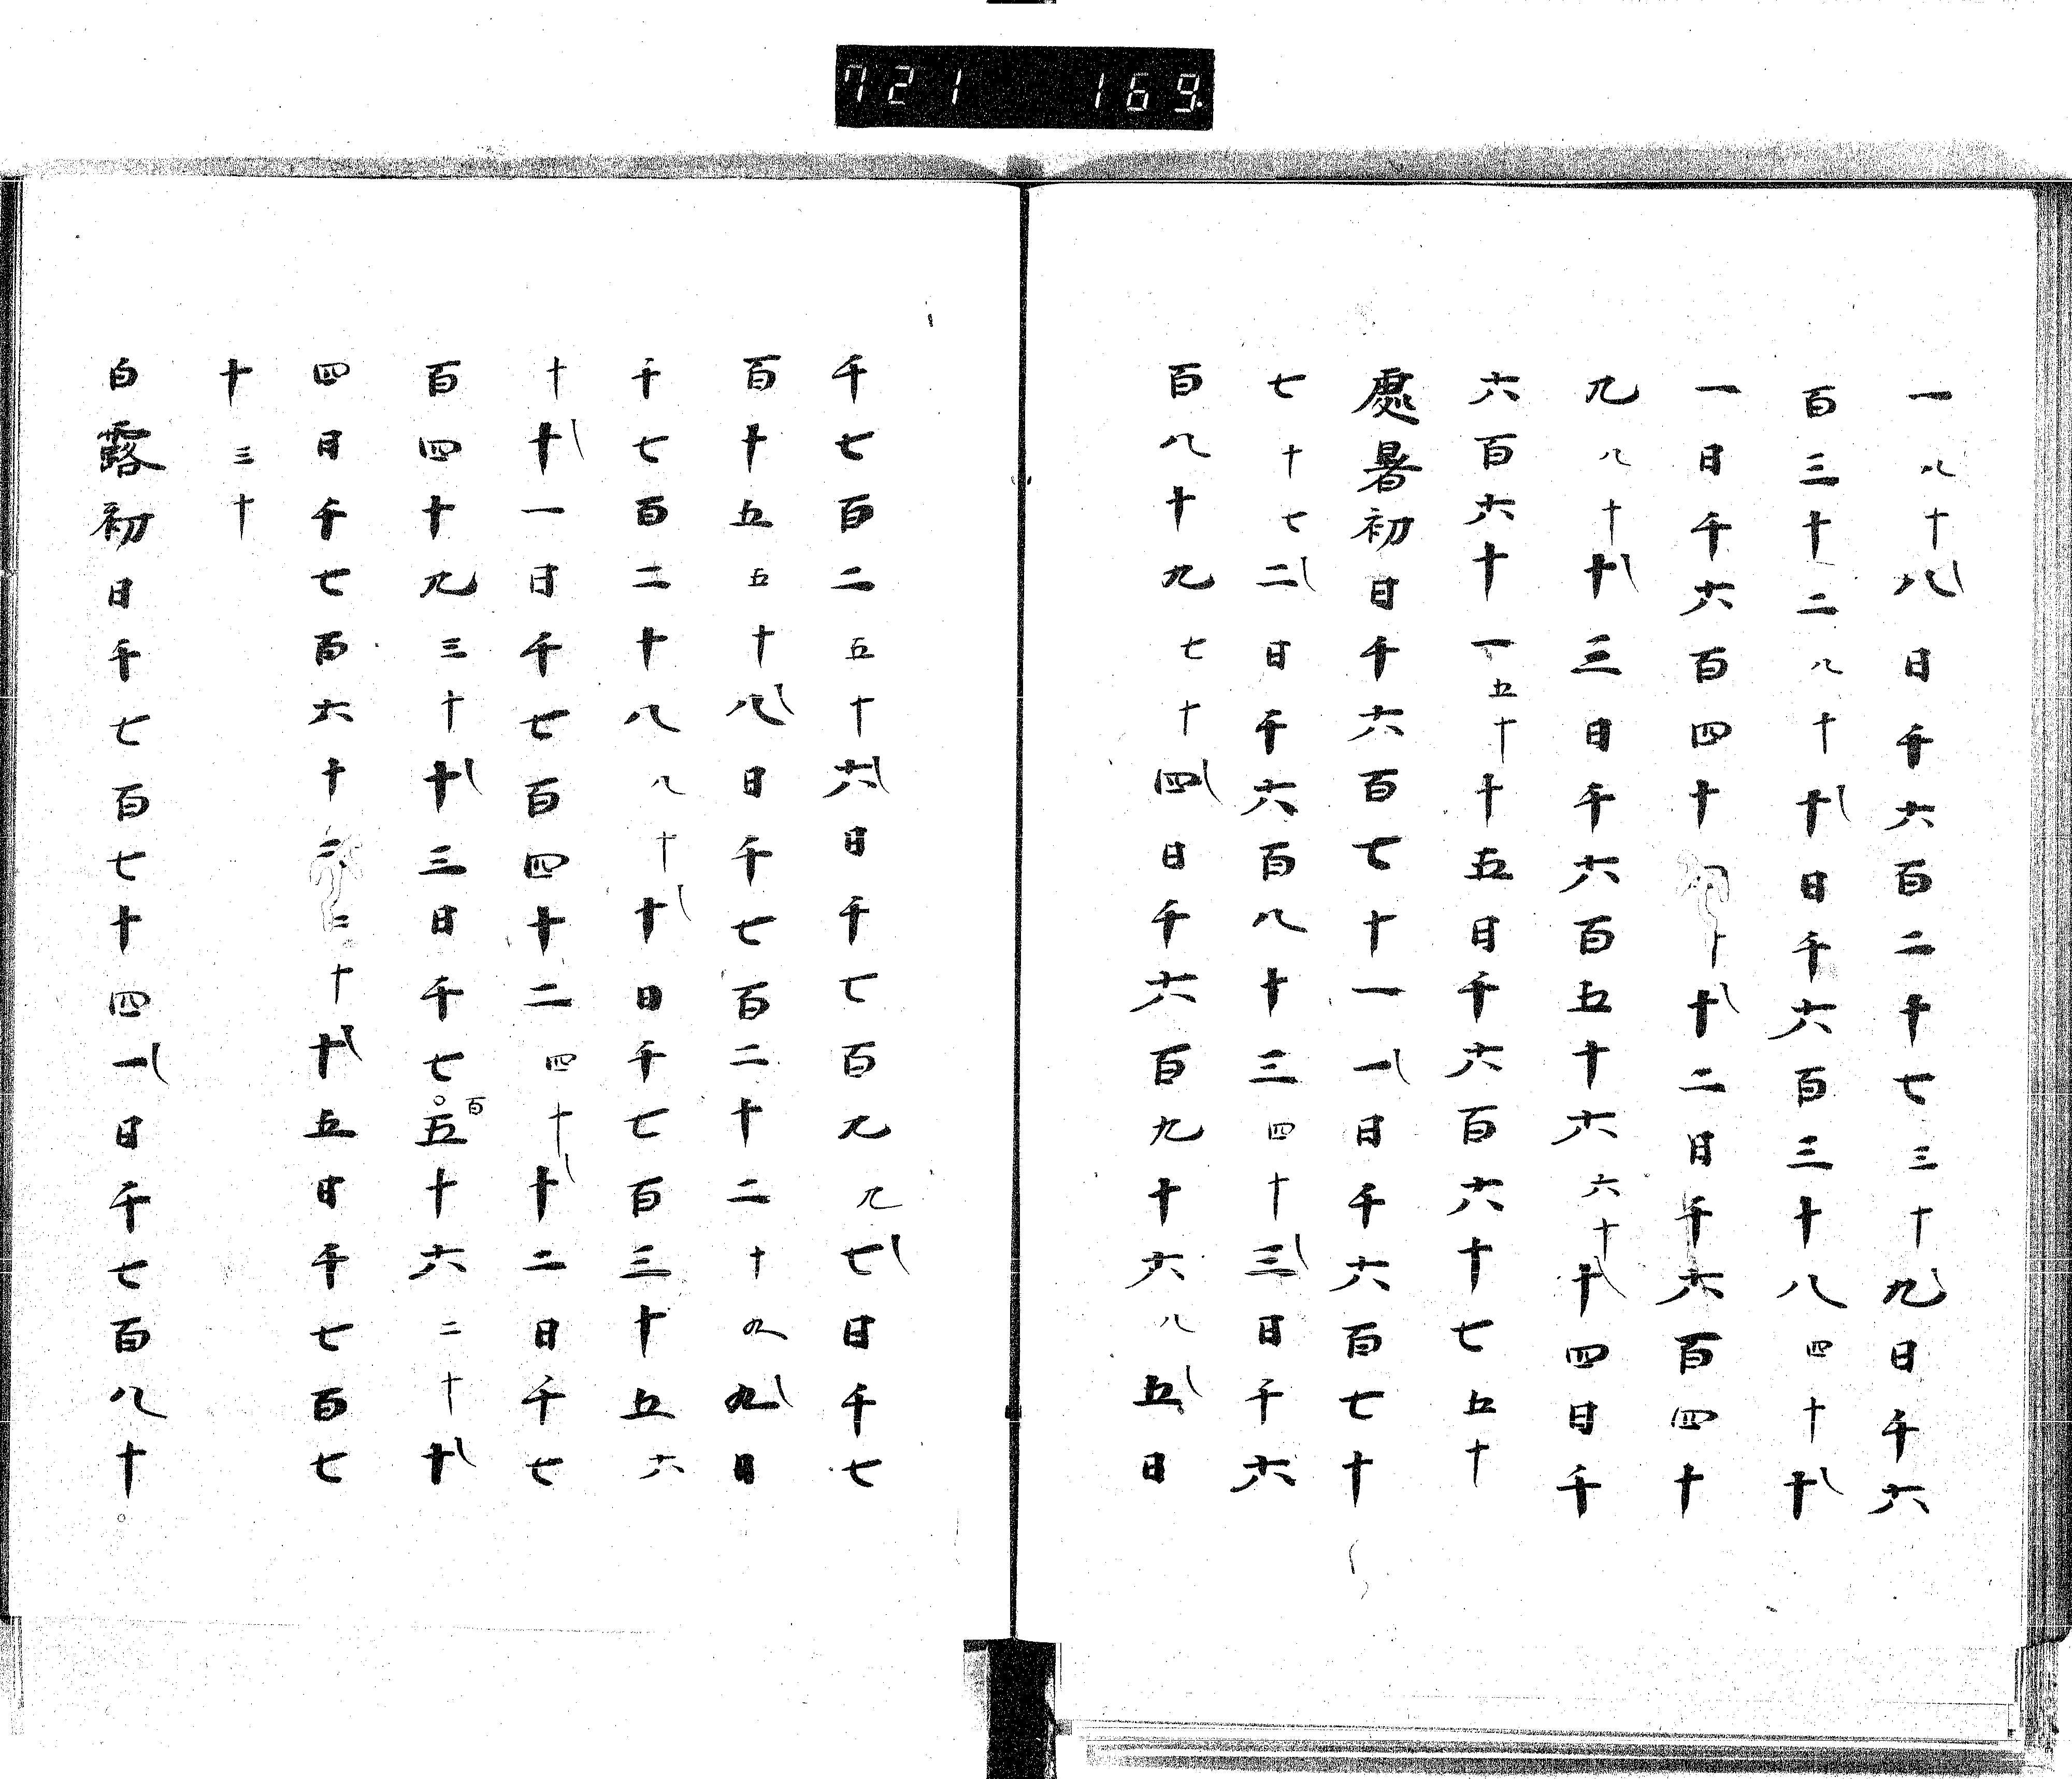 721 169.
一八十八日千六百二十七三十九日千六
百三十二八十十日千六百三十八四十十
一日千六百四十十十二日千六百四十
九八十十三日千六百五十六六十十四日千
六百六十一五十十五日千六百六十七五十
處暑初日千六百七十一一日千六百七十
七十七二日千六百八十三四十三日千六
百八十九七十四日千六百九十六八五日
千七百二五十六日千七百九九七日千七
百十五五十八日千七百二十二十九九日
千七百二十八八十十日千七百三十五六
十十一日千七百四十二四十十二日千七
百四十九三十十三日千七百五十六二十十
四日千七百六十二十十五日千七百七
十三十
白露初日千七百七十四一日千七百八十